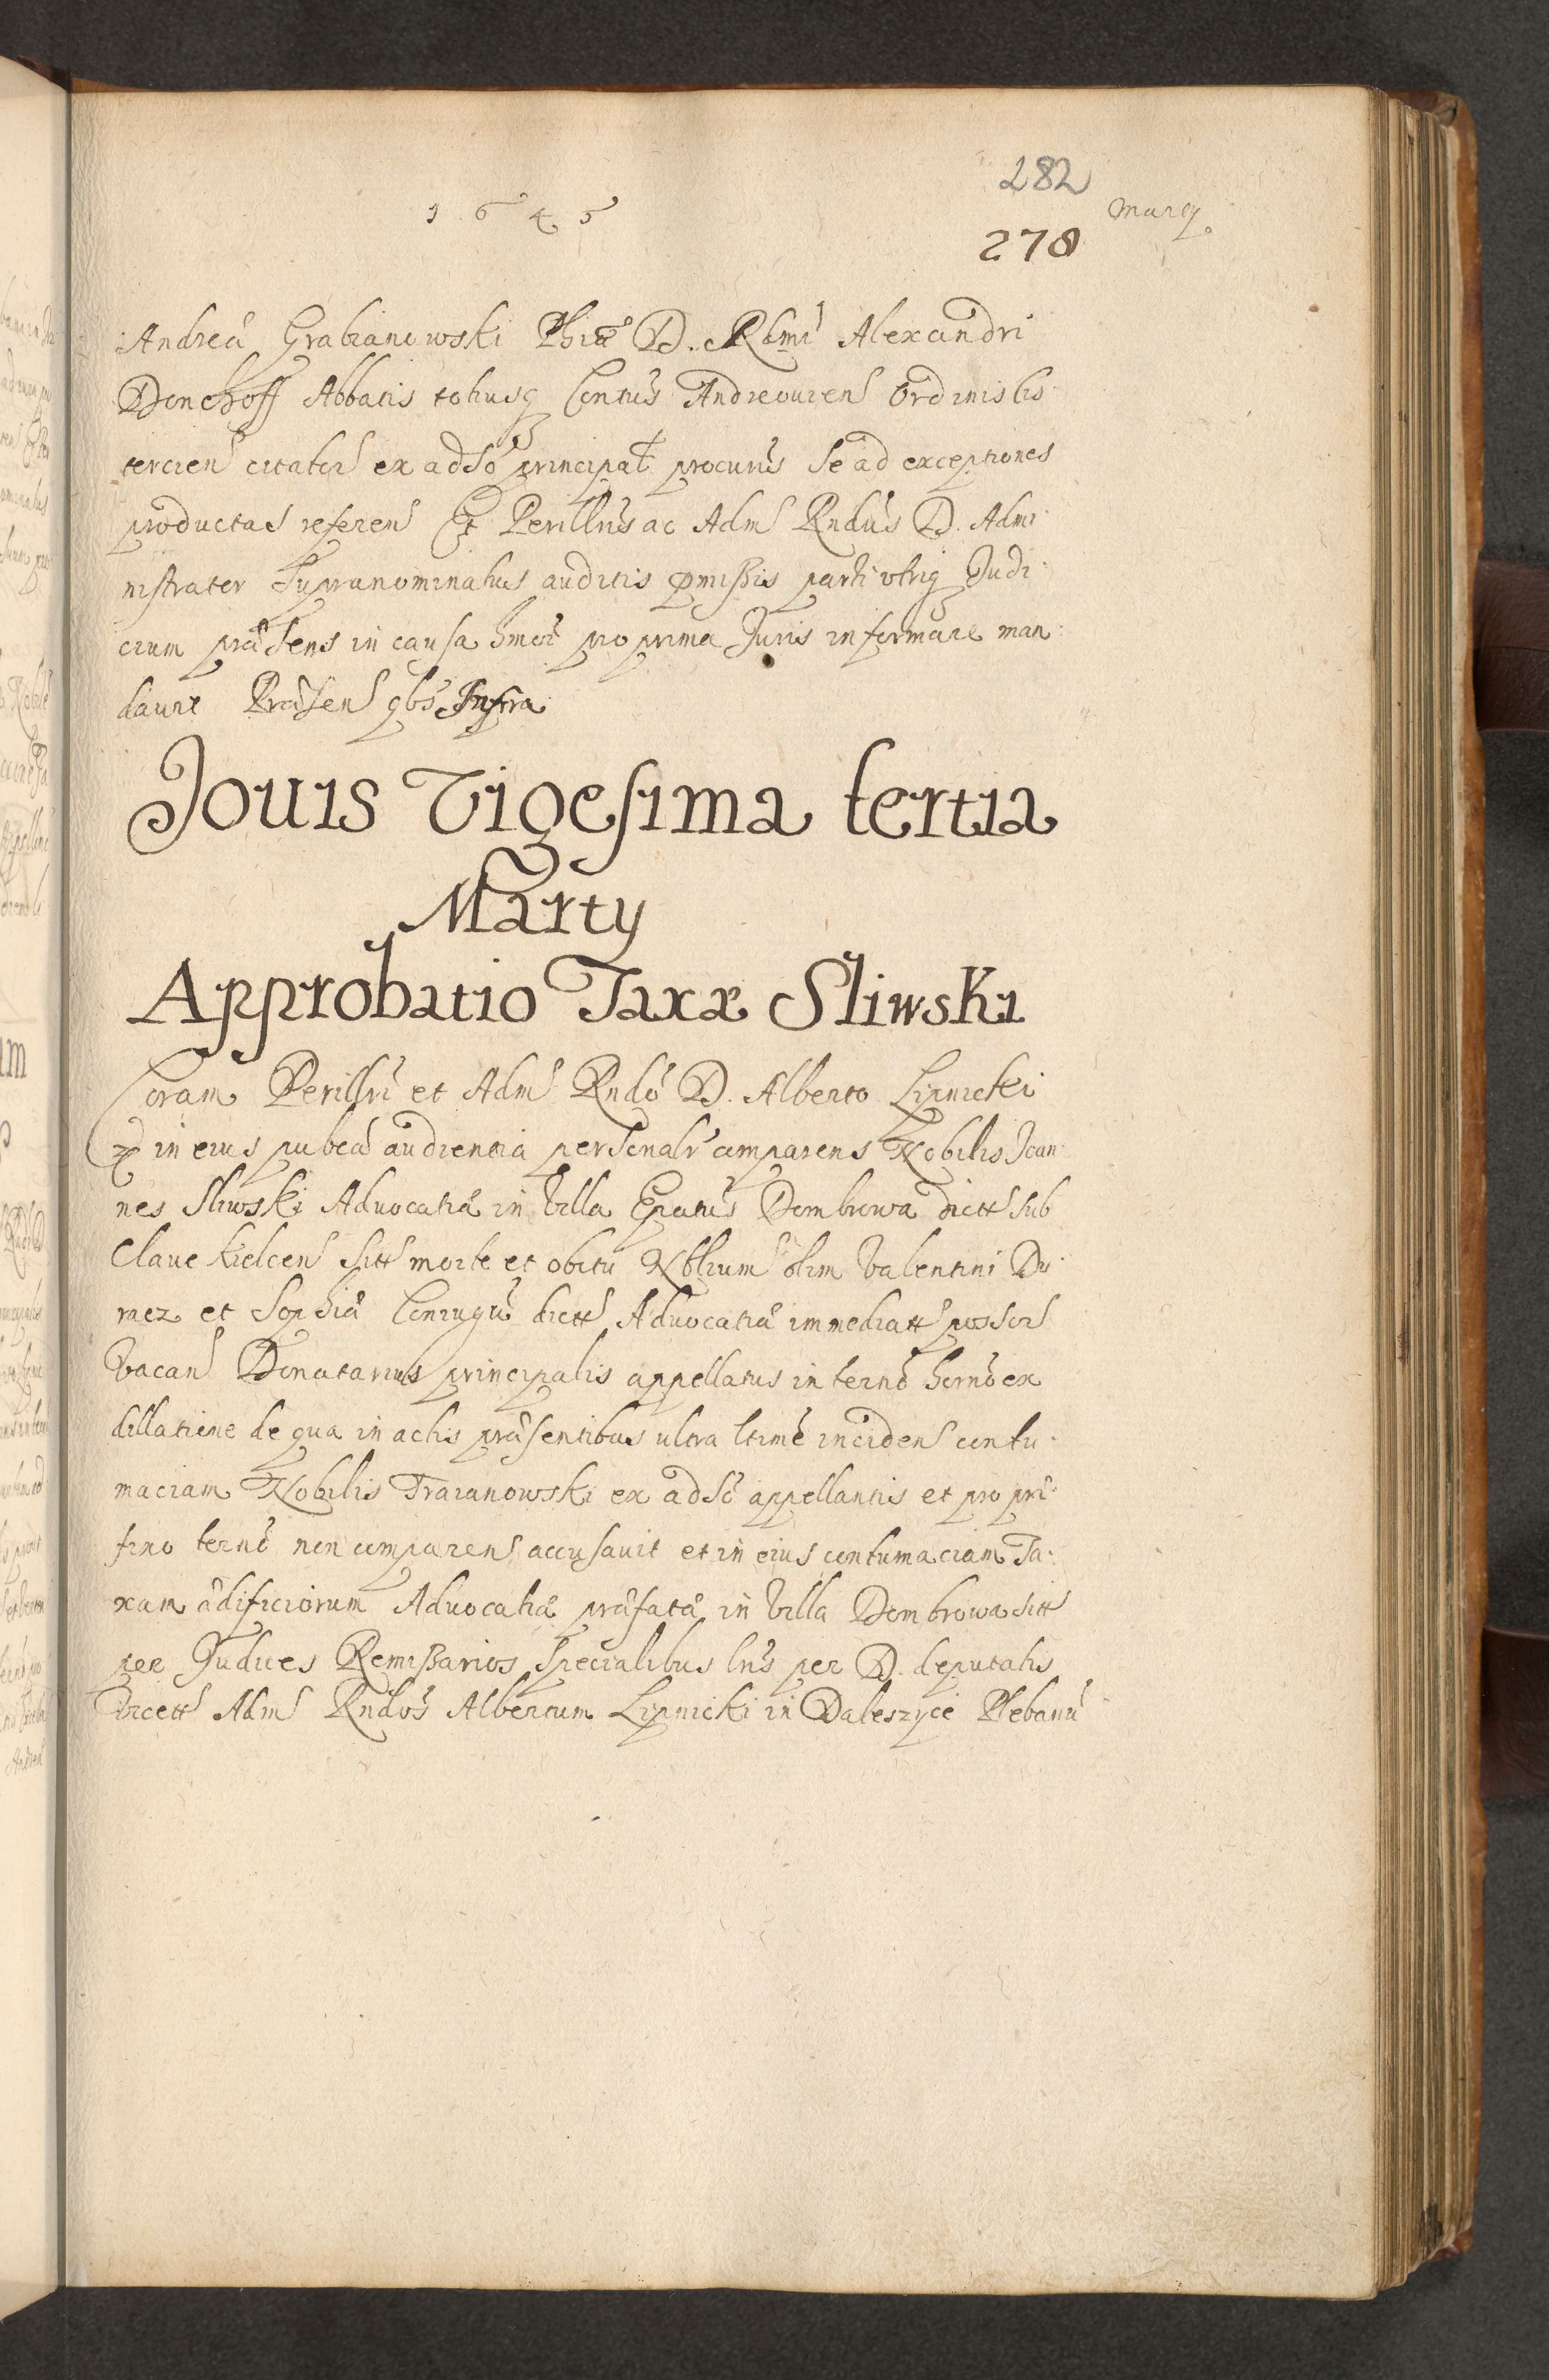 282
1645
Marty
278
Andreā Grabianowski Phiæ D. Rdmi Alexandri
Donchoff Abbatis totiusq Contūs Andreouien Ordinis Cis
tercien citator ex adso principal procuris se ad exceptiones
productas referen Et Perillris ac Adm Rndūs D. Admi
nistrator supranominatus auditis pmissis parti utriq Judi
cium præsens in causa hmoi pro prima Juris informare man
dauit Præsen qbs Infra
Jouis Vigesima tertia
Marty
Approbatio Taxæ Sliwski
Coram Perillri et Adm Rndo D. Alberto Lipnicki
in eius pubca audientia personalr comparens Nobilis Joan
nes Sliwski Aduocatiæ in Villa Epatūs Dombrowa dictt sub
Claue Kielcen sitt morte et obitu Nblium olim Valentini Du
racz et Sophiæ Coniugū dictt Aduocatiæ immediatt possor
Vacan Donatarius principalis appellatus in termō hornō ex
dillatione de qua in actis præsentibus ultra ltimē inciden contu
maciam Nobilis Traianowski ex adso appellantis et pro prī
fixo termō non comparen accusauit et in eius contumaciam Ta
xam ædificiorum Aduocatiæ præfatæ in Villa Dombrowa sitt
per Judices Remissarios specialibus lris per D. deputatis
Vicett Adm Rndos Albertum Lipnicki in Daleszyce Plebanū